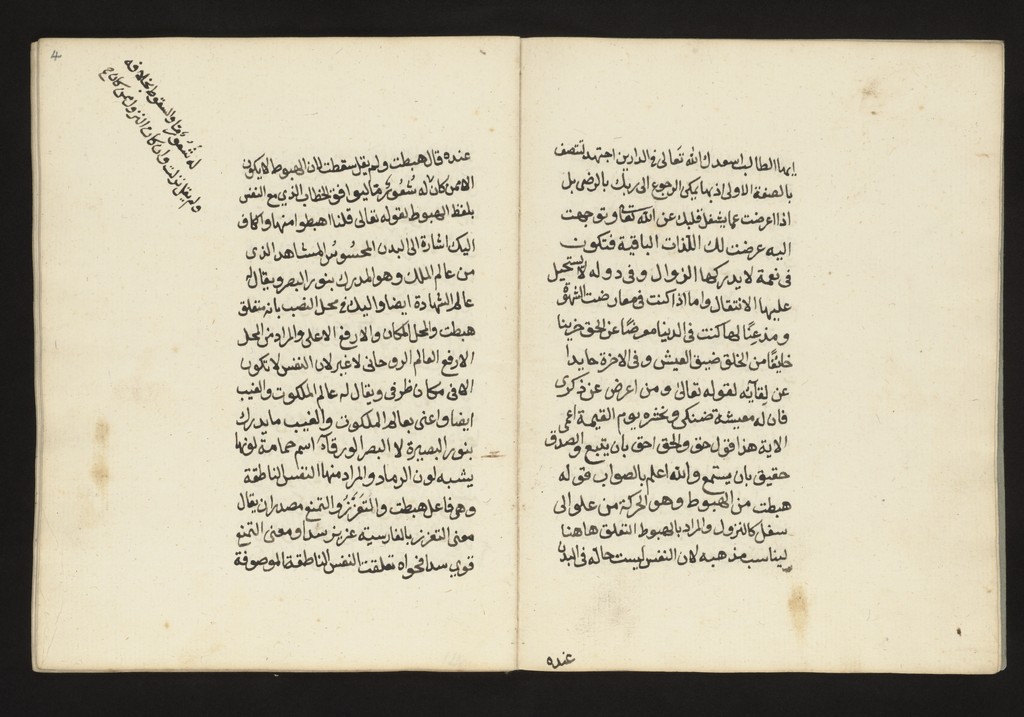 ايها الطالب اسعدك الله تعالى في الدارين اجتهد لتتصف
بالصفة الاولى اذ بها يمكن الرجوع الى ربك بالرضى بل
اذا اعرضت عما يشغل قلبك عن الله تعالى وتوجهت
اليه عرضت لك اللذات الباقية فتكون
في نعمة لا يدركها الزوال وفي دوله لا يستحيل
عليها الانتقال واما اذا كنت في معارضت الشهوة
ومذعنا لها كنت في الدنيا معرضا عن الحق حزينا
خايفا من الخلق ضيق العيش وفي الاخرة حايدا
عن لقآئه لقوله تعالى ومن اعرض عن ذكرى
فان له معيشة ضنكى ونحشره يوم القيمة اعمى
الاية هذا قول حق والحق احق بان يتبع والصدق
حقيق بان يستمع والله اعلم بالصواب قوله
هبطت من الهبوط وهو الحركة من علو الى
سفل كالنزول والمراد بالهبوط التعلق هاهنا
ليناسب مذهبه لان النفس ليست حالة في البدن
عنده
عنده قال هبطت ولم يقل سقطت لان الهبوط لا يكون
الا ممن كان له شعور ما ليوافق الخطاب الذي مع النفس
بلفظ الهبوط لقوله تعالى قلنا اهبطوا منها والكاف
اليك اشارة الى البدن المحسوس المشاهد الذى
من عالم الملك وهو المدرك بنور البصر ويقال له
عالم الشهادة ايضا واليك في محل النصب بانه متعلق
هبطت والمحل المكان والارفع الاعلى والمراد من المحل
الارفع العالم الروحاني لا غير لان النفس لا تكون
الا في مكان ظرفى ويقال له عالم الملكوت والغيب
ايضا واعنى بعالم الملكوت والغيب ما يدرك
بنور البصيرة لا البصر الورقآء اسم حمامة لونها
يشبه لون الرماد والمراد منها النفس الناطقة
وهى فاعل هبطت والتعزز والتمنع مصدران يقال
معنى التعزز بالفارسيه عزيز شد ومعنى التمنع
قوي شد فحواه تعلقت النفس الناطقة الموصوفة
4
له شعور ما والسقوط بخلافه
ولم يقل نزلت وان كان النزول ممن كان